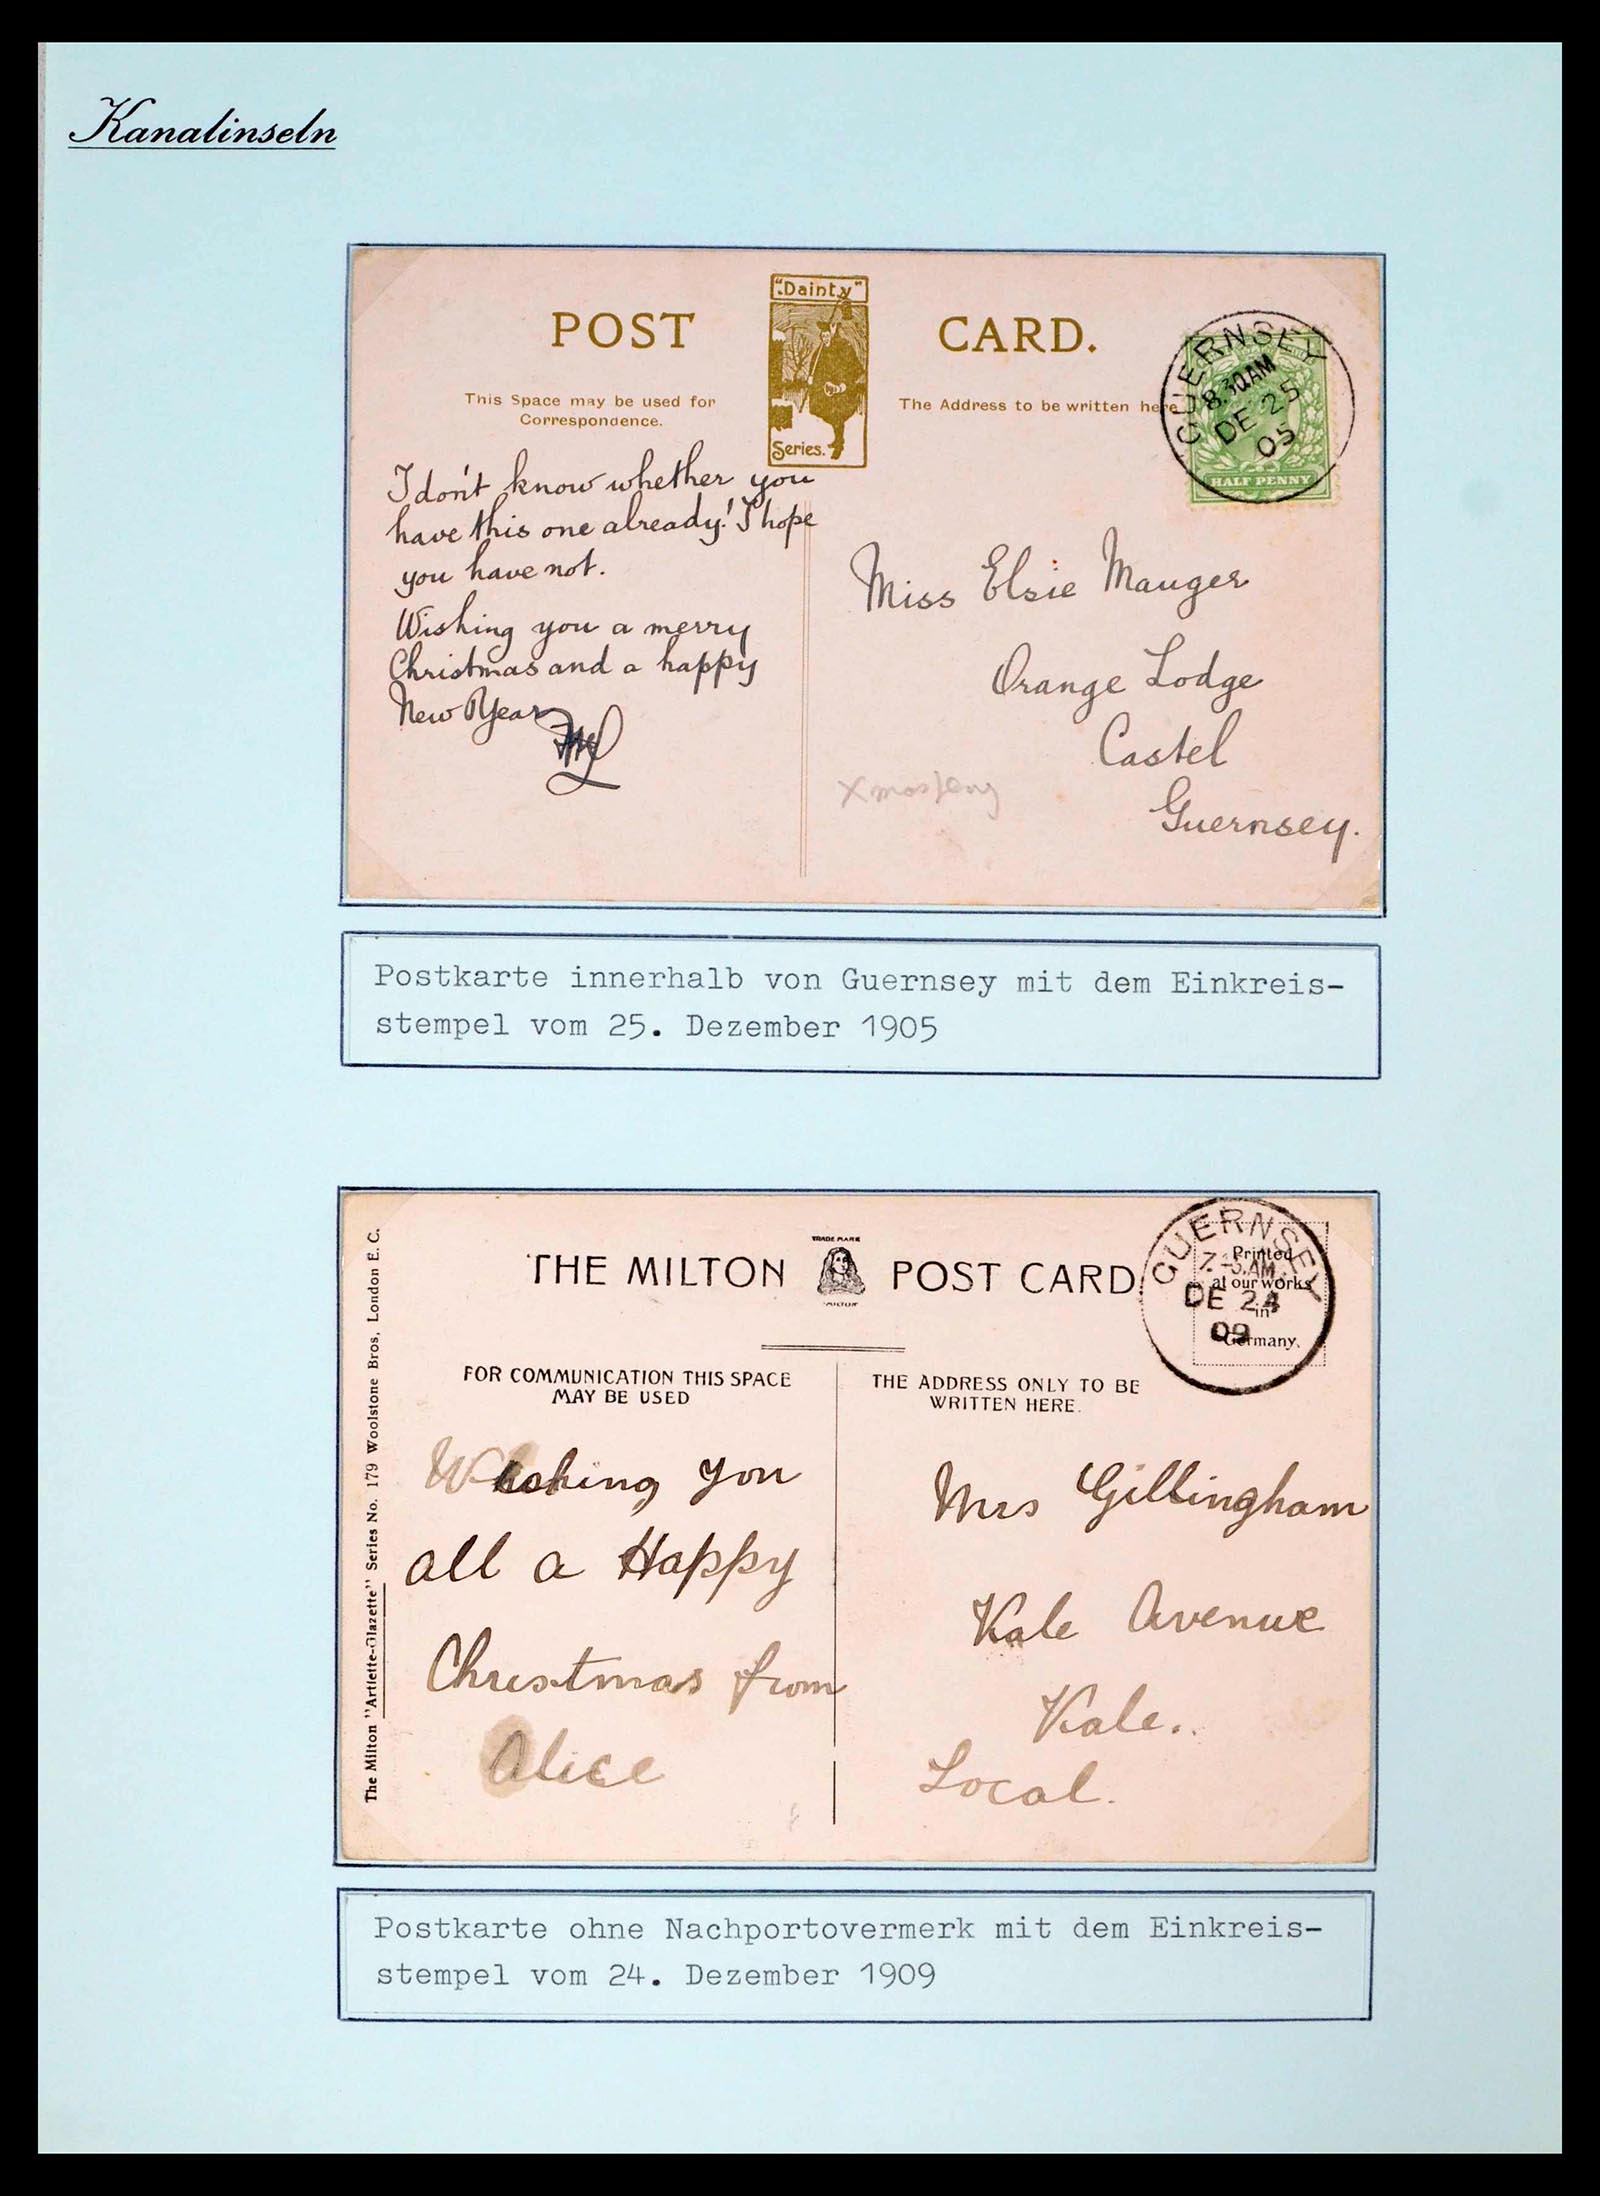 Kanalinseln
POST CARD.
"Dainty"
Series.
This Space may be used for
Correspondence.
The Address to be written here
GUERNSEY
8.30AM
DE 25
05
HALF PENNY
I don't know whether you
have this one already! I hope
you have not.
Wishing you a merry
Christmas and a happy
New Year
Miss Elsie Mauger
Orange Lodge
Castel
Guernsey.
Postkarte innerhalb von Guernsey mit dem Einkreis-
stempel vom 25. Dezember 1905
The Milton "Artlette-Glazette" Series No. 179 Woolstone Bros, London E. C.
THE MILTON POST CARD
TRADE MARK
"MILTON"
GUERNSEY
AM
DE 24
09
Printed
at our works
in
Germany.
FOR COMMUNICATION THIS SPACE
MAY BE USED
THE ADDRESS ONLY TO BE
WRITTEN HERE.
Wishing you
all a Happy
Christmas from
Alice
Mrs Gillingham
Vale Avenue
Vale.
Local.
Postkarte ohne Nachportovermerk mit dem Einkreis-
stempel vom 24. Dezember 1909